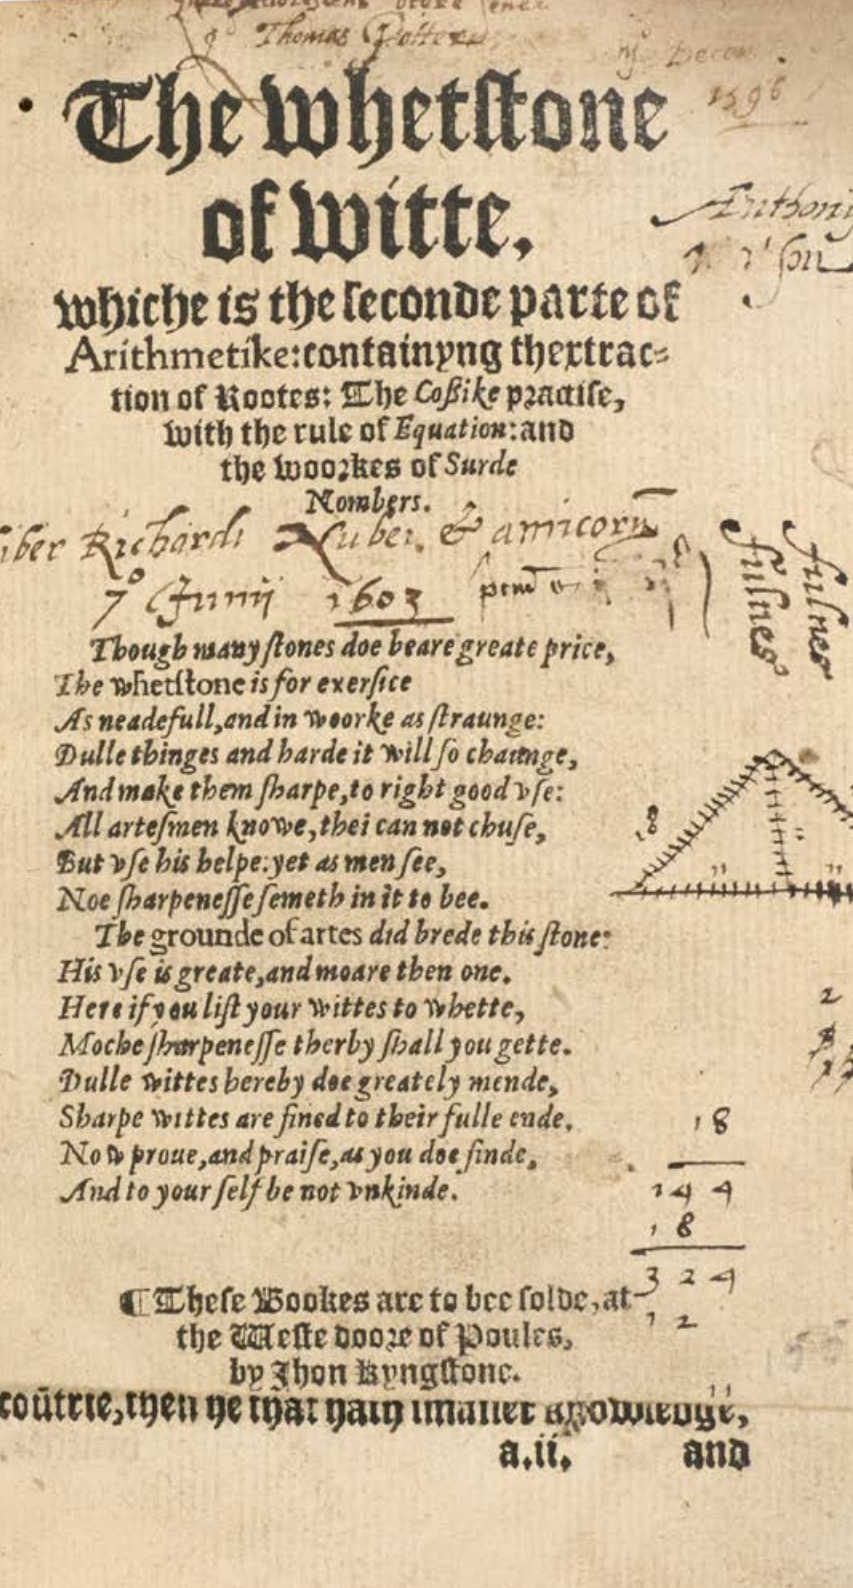 Thomas Potter
1596
The whetſtone
of witte,
whiche is the ſeconde parte of
Anthony
Arithmetike: containyng thextrac-
tion of Rootes: The Coßike practiſe,
with the rule of Equation: and
the woorkes of Surde
Nombers.
liber Richardi & amicorū
7° Junij 1603
fulnes
fulnes
Though many ſtones doe beare greate price,
The whetſtone is for exerſice
As neadefull, and in woorke as ſtraunge:
Dulle thinges and harde it will ſo chaunge,
And make them ſharpe, to right good vſe:
All arteſmen knowe, thei can not chuſe,
18
But vſe his helpe: yet as men ſee,
Noe ſharpeneſſe ſemeth in it to bee.
The grounde of artes did brede this ſtone:
His vſe is greate, and moare then one.
Here if you liſt your wittes to whette,
2
Moche ſharpeneſſe therby ſhall you gette.
Dulle wittes hereby doe greately mende,
Sharpe wittes are fined to their fulle ende.
18
Now proue, and praiſe, as you doe finde,
And to your ſelf be not vnkinde.
144
18
324
¶These Bookes are to bee ſolde, at
12
the Weſte doore of Poules,
by Jhon Kyngſtone.
coūtrie, then he that hath ſmaller knowledge,
a.ii. and